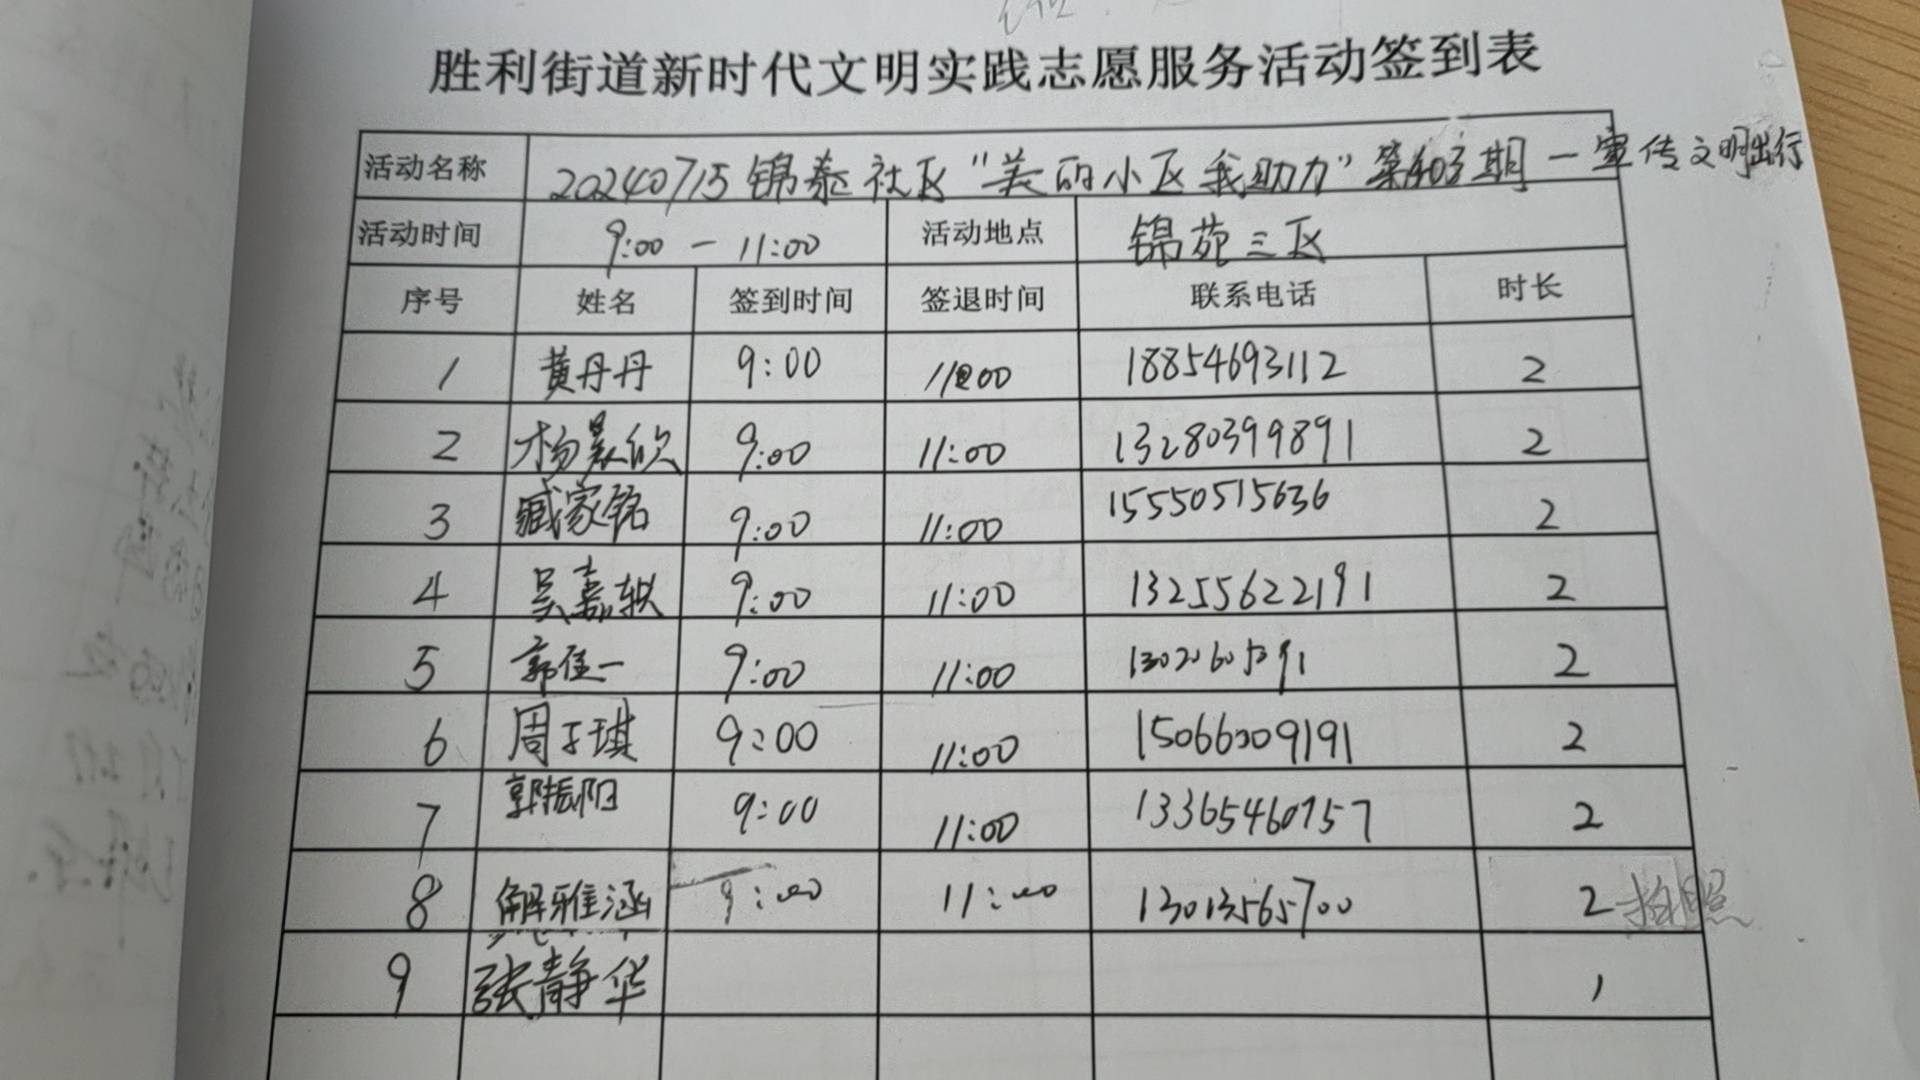 胜利街道新时代文明实践志愿服务活动签到表
活动名称 20240715锦泰社区“美的小区我助力”第403期－宣传文明出行
活动时间 9:00－11:00 活动地点 锦苑三区
序号 姓名 签到时间 签退时间 联系电话 时长
1 黄丹丹 9:00 11:00 18854693112 2
2 杨晨欣 9:00 11:00 13280399891 2
3 臧家铭 9:00 11:00 15550515636 2
4 吴嘉轶 9:00 11:00 13255622191 2
5 郭佳一 9:00 11:00 2
6 周子琪 9:00 11:00 15066009191 2
7 郭振阳 9:00 11:00 13365460757 2
8 解雅涵 9:00 11:00 13013565700 2 拍照
9 张静华 1